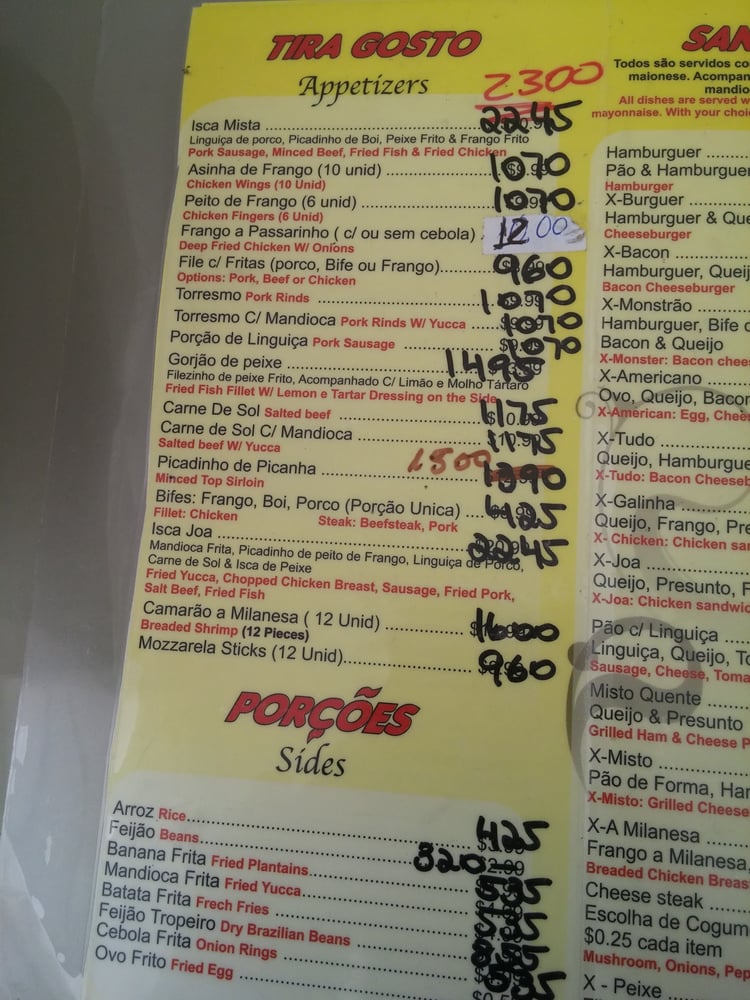 TIRA GOSTO
Appetizers
2300
Isca Mista 2245
Linguiça de porco, Picadinho de Boi, Peixe Frito & Frango Frito
Pork Sausage, Minced Beef, Fried Fish & Fried Chicken
Asinha de Frango (10 unid) 1070
Chicken Wings (10 Unid)
Peito de Frango (6 unid) 1070
Chicken Fingers (6 Unid)
Frango a Passarinho ( c/ ou sem cebola) 12 00
Deep Fried Chicken W/ Onions
File c/ Fritas (porco, Bife ou Frango) 960
Options: Pork, Beef or Chicken
Torresmo Pork Rinds 1070
Torresmo C/ Mandioca Pork Rinds W/ Yucca 1070
Porção de Linguiça Pork Sausage 1070
Gorjão de peixe 1495
Filezinho de peixe Frito, Acompanhado C/ Limão e Molho Tártaro
Fried Fish Fillet W/ Lemon e Tartar Dressing on the Side
Carne De Sol Salted beef 1175
Carne de Sol C/ Mandioca 1175
Salted beef W/ Yucca
Picadinho de Picanha 1500 1390
Minced Top Sirloin
Bifes: Frango, Boi, Porco (Porção Unica)
Fillet: Chicken Steak: Beefsteak, Pork
Isca Joa 2245
Mandioca Frita, Picadinho de peito de Frango, Linguiça de Porco,
Carne de Sol & Isca de Peixe
Fried Yucca, Chopped Chicken Breast, Sausage, Fried Pork,
Salt Beef, Fried Fish
Camarão a Milanesa ( 12 Unid) 1600
Breaded Shrimp (12 Pieces)
Mozzarela Sticks (12 Unid) 960
PORÇÕES
Sides
Arroz Rice 425
Feijão Beans
Banana Frita Fried Plantains 320
Mandioca Frita Fried Yucca
Batata Frita Frech Fries
Feijão Tropeiro Dry Brazilian Beans
Cebola Frita Onion Rings
Ovo Frito Fried Egg
SAN
Todos são servidos co
maionese. Acompan
mandio
All dishes are served w
mayonnaise. With your choi
Hamburguer
Pão & Hamburguer
Hamburguer
X-Burguer
Hamburguer & Que
Cheeseburger
X-Bacon
Hamburguer, Queij
Bacon Cheeseburger
X-Monstrão
Hamburguer, Bife c
Bacon & Queijo
X-Monster: Bacon chee
X-Americano
Ovo, Queijo, Bacon
X-American: Egg, Chee
X-Tudo
Queijo, Hamburgue
X-Tudo: Bacon Cheeseb
X-Galinha
Queijo, Frango, Pre
X- Chicken: Chicken sa
X-Joa
Queijo, Presunto, F
X-Joa: Chicken sandwic
Pão c/ Linguiça
Linguiça, Queijo, To
Sausage, Cheese, Toma
Misto Quente
Queijo & Presunto
Grilled Ham & Cheese P
X-Misto
Pão de Forma, Ham
X-Misto: Grilled Cheese
X-A Milanesa
Frango a Milanesa,
Breaded Chicken Breas
Cheese steak
Escolha de Cogum
$0.25 cada item
Mushroom, Onions, Pep
X - Peixe